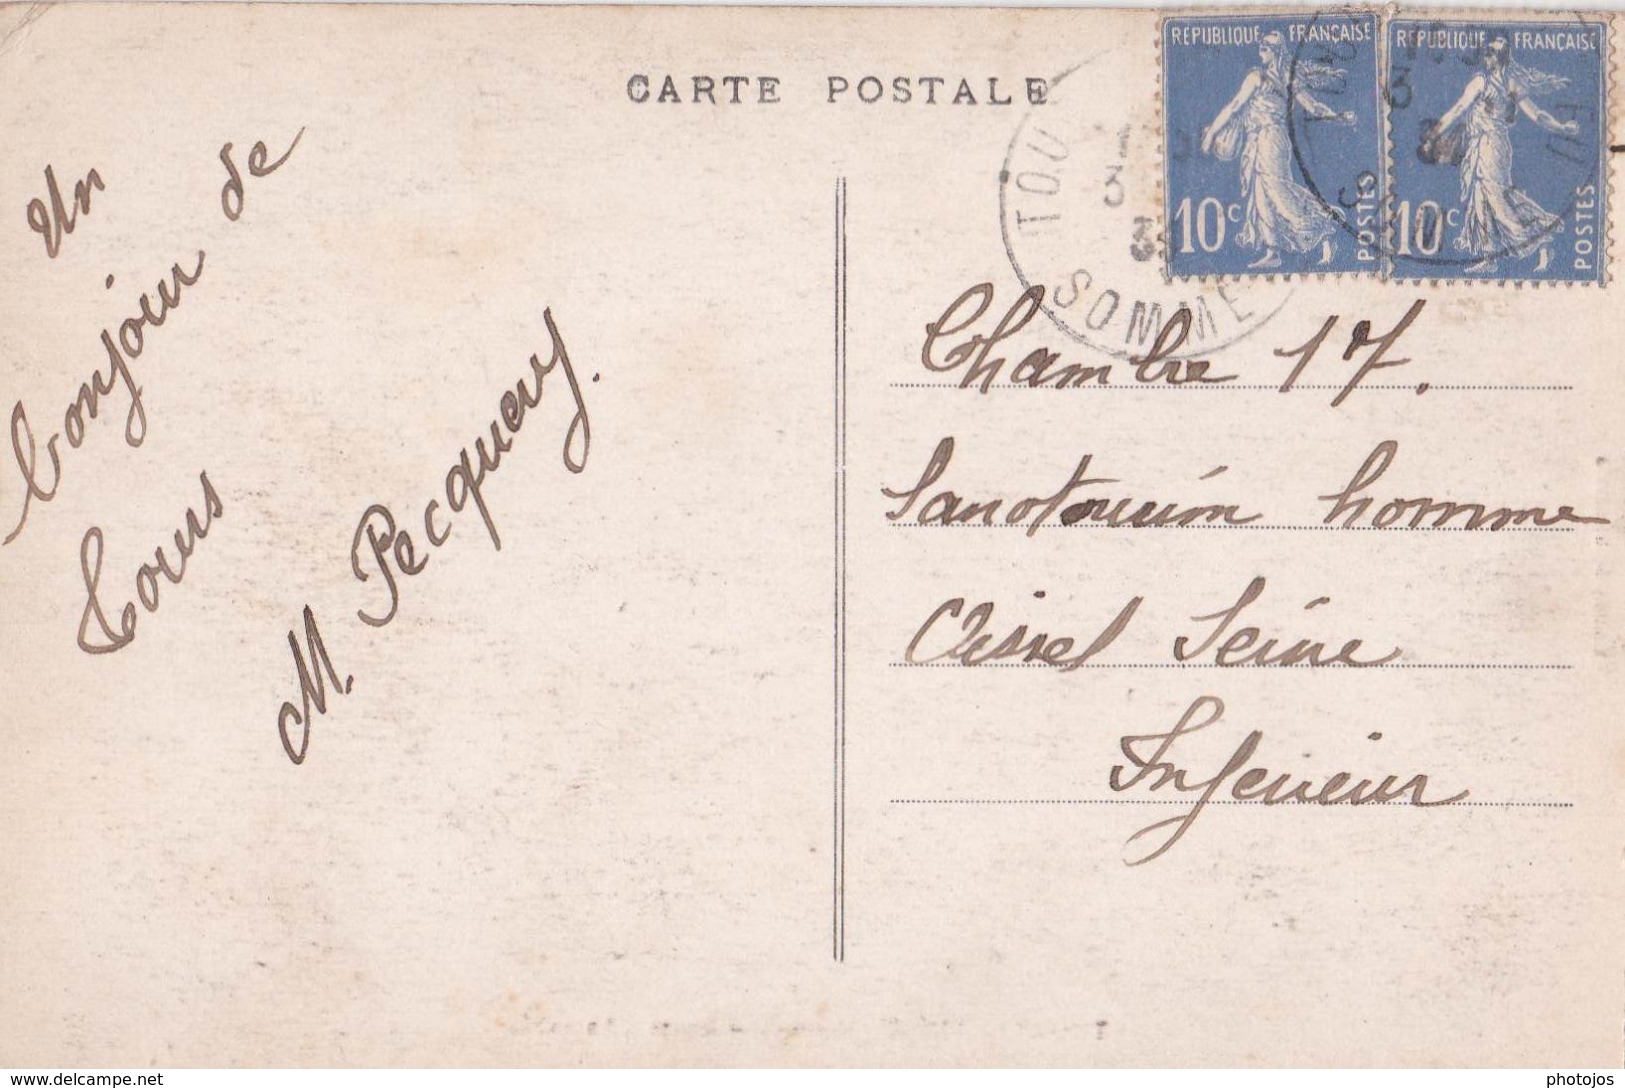 CARTE POSTALE
REPUBLIQUE FRANÇAISE
10c
POSTES
REPUBLIQUE FRANÇAISE
10c
POSTES
TOU
3
SOMME
TOU
3
SOMME
Un
bonjour de
Tours
M. Pecquery.
Chambre 17.
Sanotorium homme
Oissel Seine
Inferieur
www.delcampe.net
photojos